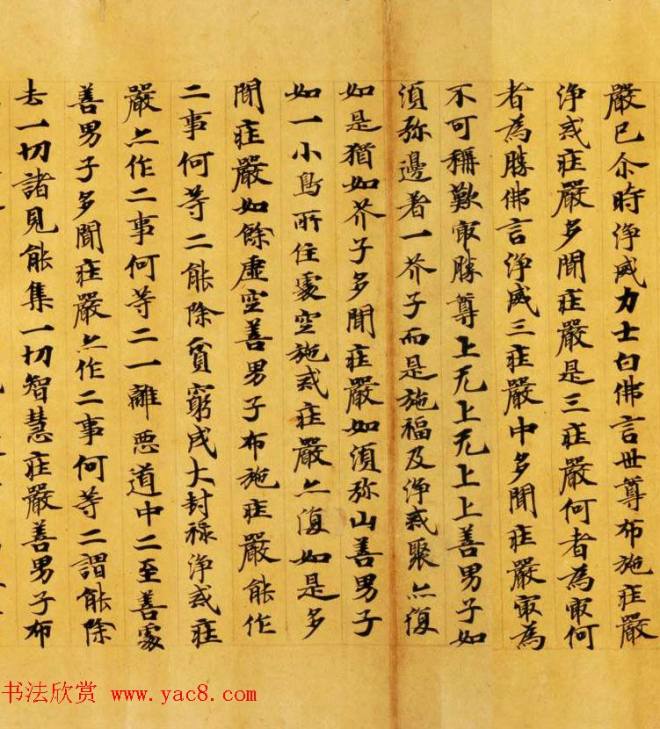 嚴已尒時淨威力士白佛言世尊布施疰嚴
淨戒疰嚴多聞疰嚴是三疰嚴何者為冣何
者為勝佛言淨威三疰嚴中多聞疰嚴冣為
不可稱歎冣勝尊上无上无上上善男子如
湏弥邊著一芥子而是施福及淨戒聚亦復
如是猶如芥子多聞疰嚴如湏弥山善男子
如一小鳥所住處空施戒疰嚴亦復如是多
聞疰嚴如餘虛空善男子布施疰嚴能作
二事何等二能除貧窮成大封祿淨戒疰
嚴亦作二事何等二一離惡道中二至善處
善男子多聞疰嚴亦作二事何等二謂能除
去一切諸見能集一切智慧疰嚴善男子布
书法欣赏 www.yac8.com